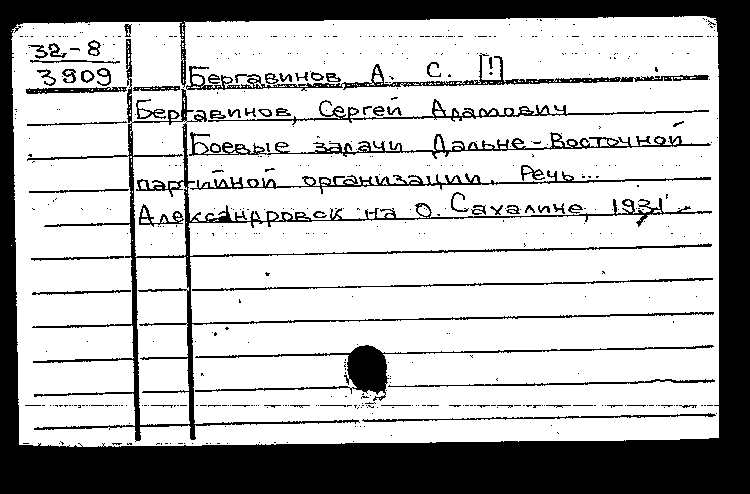 32-8
3809
Бергавинов, А. С. [!]
Бергавинов, Сергей Адамович
Боевые задачи Дальне-Восточной
партийной организации. Речь...
Александровск на О. Сахалине, 1931.-